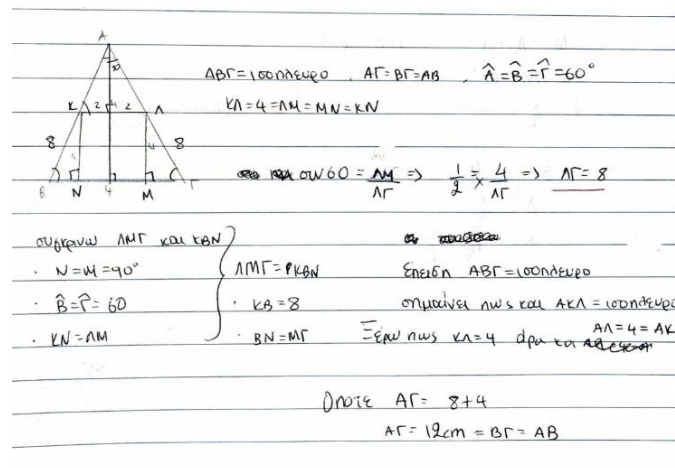 A
30
K 2 2 Λ
8 8
4 4
B N 4 M Γ
ΑΒΓ = ισοπλευρο , ΑΓ = ΒΓ = ΑΒ , Â = B̂ = Γ̂ = 60°
ΚΛ = 4 = ΛΜ = ΜΝ = ΚΝ
συν 60 = ΛΜ/ΛΓ => 1/2 = 4/ΛΓ => ΛΓ = 8
συγκρινω ΛΜΓ και ΚΒΝ
· Ν = Μ = 90°
· B̂ = Γ̂ = 60
· ΚΝ = ΛΜ
ΛΜΓ = ΚΒΝ
· ΚΒ = 8
· ΒΝ = ΜΓ
Επειδη ΑΒΓ = ισοπλευρο
σημαινει πως και ΑΚΛ = ισοπλευρο
Ξέρω πως ΚΛ = 4 άρα και ΑΛ = 4 = ΑΚ
Οποτε ΑΓ = 8 + 4
ΑΓ = 12cm = ΒΓ = ΑΒ